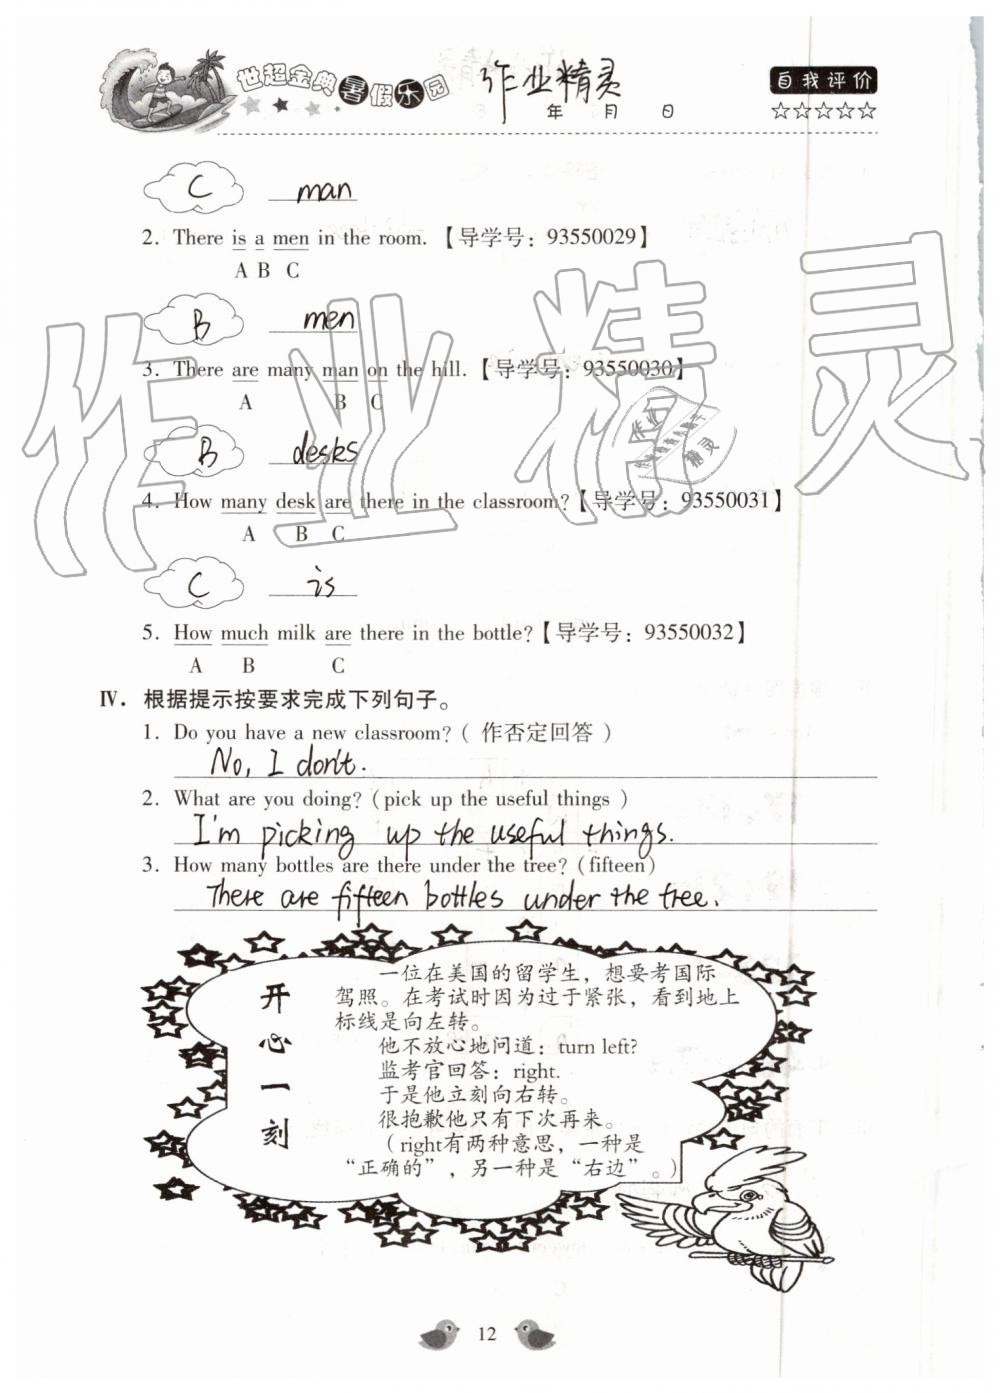 世超金典暑假乐园
作业精灵
年 月 日
自我评价
☆☆☆☆☆
C man
2. There is a men in the room.【导学号：93550029】
A B C
B men
3. There are many man on the hill.【导学号：93550030】
A B C
B desks
4. How many desk are there in the classroom?【导学号：93550031】
A B C
C is
5. How much milk are there in the bottle?【导学号：93550032】
A B C
Ⅳ. 根据提示按要求完成下列句子。
1. Do you have a new classroom?( 作否定回答 )
No, I don't.
2. What are you doing?(pick up the useful things )
I'm picking up the useful things.
3. How many bottles are there under the tree?(fifteen)
There are fifteen bottles under the tree.
开心一刻
一位在美国的留学生，想要考国际
驾照。在考试时因为过于紧张，看到地上
标线是向左转。
他不放心地问道：turn left?
监考官回答：right.
于是他立刻向右转。
很抱歉他只有下次再来。
（right有两种意思，一种是
“正确的”，另一种是“右边”。）
12
作业精灵